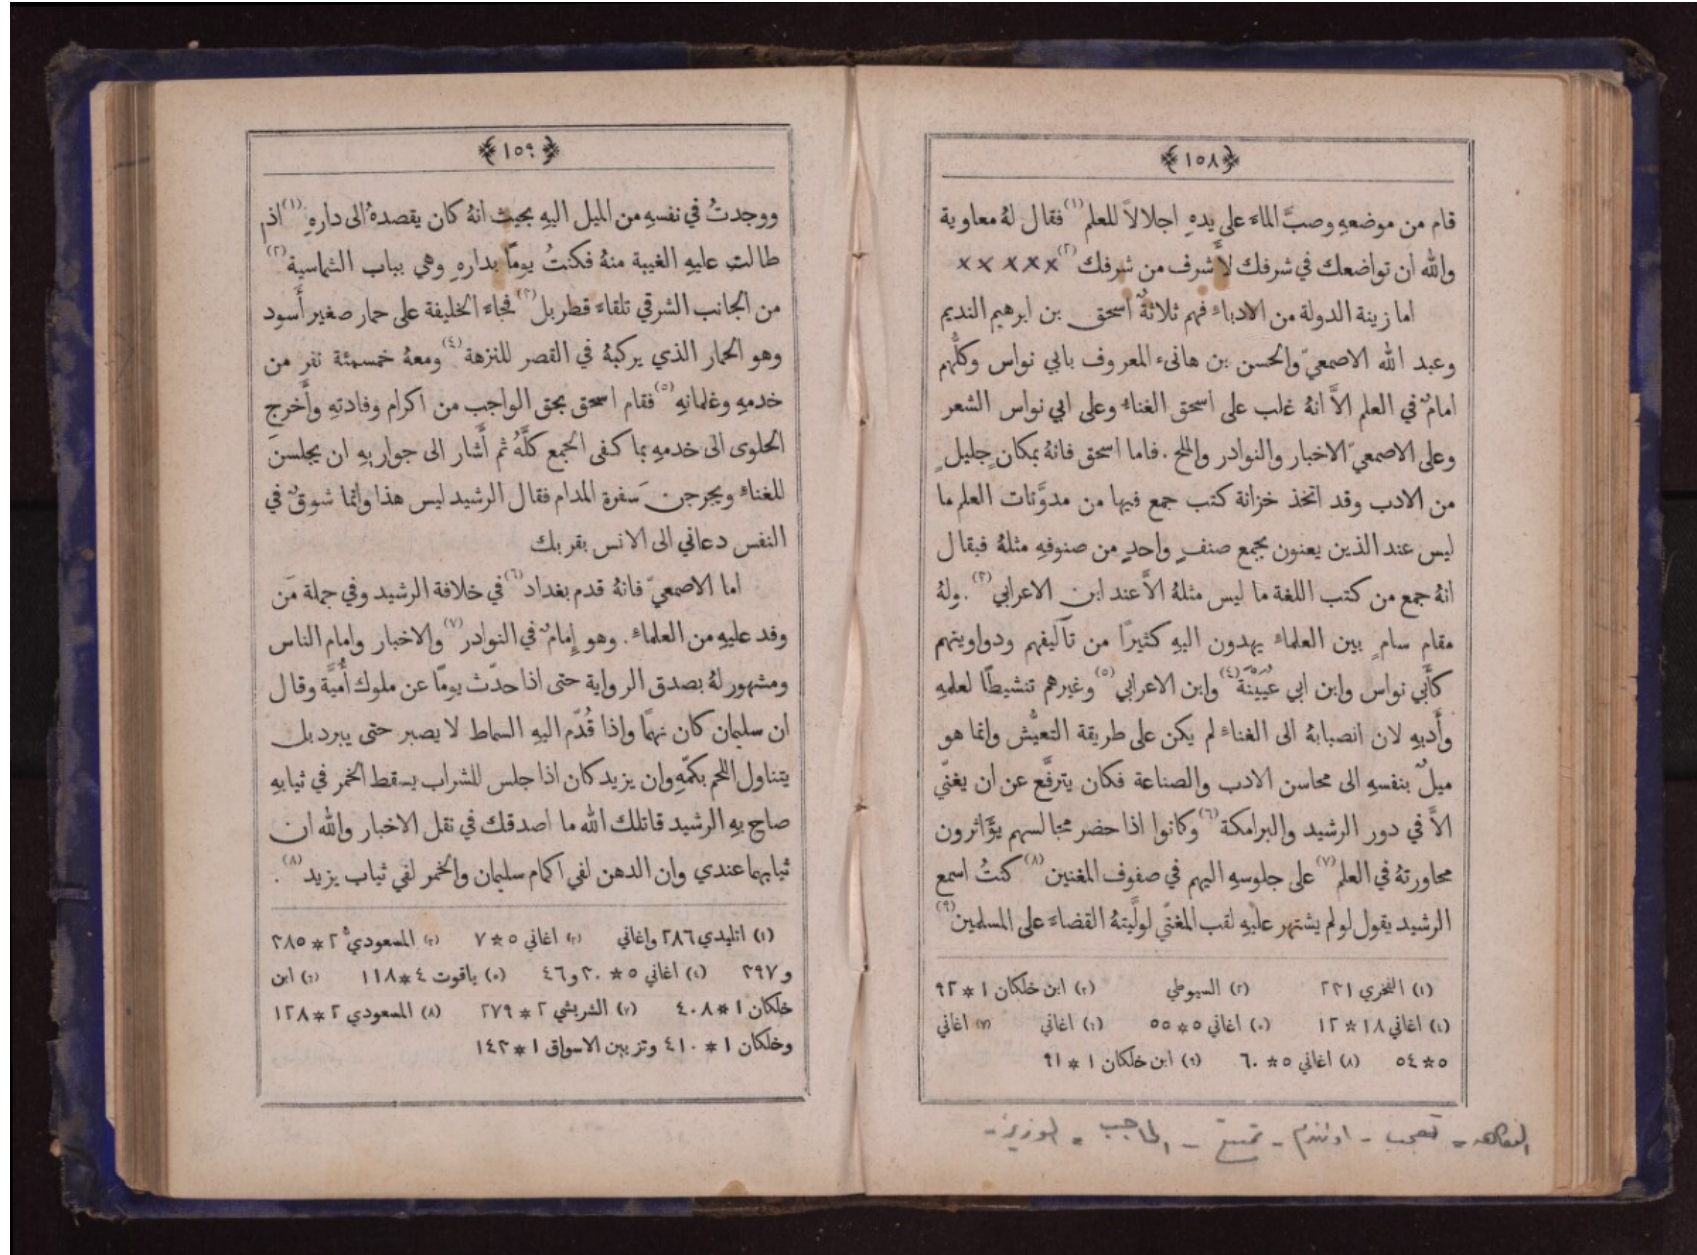 ﴿١٥٨﴾
قام من موضعهِ وصبَّ الماءَ على يدهِ اجلالاً للعلم (١) فقال لهُ معاوية
والله ان تواضعك في شرفك لأَشرف من شرفك (٢) ×××××
اما زينة الدولة من الادباءِ فهم ثلاثةٌ اسحق بن ابرهيم النديم
وعبد الله الاصمعيّ والحسن بن هانىء المعروف بابي نواس وكلُّهم
امامٌ في العلم الاَّ انهُ غلب على اسحق الغناءُ وعلى ابي نواس الشعر
وعلى الاصمعيّ الاخبار والنوادر والملح . فاما اسحق فانهُ بمكانٍ جليلٍ
من الادب وقد اتخذ خزانة كتب جمع فيها من مدوَّنات العلم ما
ليس عند الذين يعنون بجمع صنفٍ واحدٍ من صنوفهِ مثلهُ فيقال
انهُ جمع من كتب اللغة ما ليس مثلهُ الاَّ عند ابن الاعرابي (٣) . ولهُ
مقام سامٍ بين العلماءِ يهدون اليهِ كثيرًا من تآليفهم ودواوينهم
كأَبي نواس وابن ابي عُيَيْنَة (٤) وابن الاعرابي (٥) وغيرهم تنشيطًا لعلمهِ
وأَدبهِ لان انصبابهُ الى الغناءِ لم يكن على طريقة التعيُّش وانما هو
ميلٌ بنفسهِ الى محاسن الادب والصناعة فكان يترفَّع عن ان يغنّي
الاَّ في دور الرشيد والبرامكة (٦) وكانوا اذا حضر مجالسهم يؤَاثرون
محاورتهُ في العلم (٧) على جلوسهِ اليهم في صفوف المغنين (٨) كنتُ اسمع
الرشيد يقول لو لم يشتهر عليهِ لقب المغنّي لولَّيتهُ القضاءَ على المسلمين (٩)
(١) الفخري ٢٣١ (٢) السيوطي (٣) ابن خلكان ١*٩٢
(٤) اغاني ١٨*١٢ (٥) اغاني ٥*٥٥ (٦) اغاني (٧) اغاني
٥*٥٤ (٨) اغاني ٥*٦٠ (٩) ابن خلكان ١*٩١
تعجب - - - - الوزير -
﴿١٥٩﴾
ووجدتُ في نفسهِ من الميل اليهِ بحيث انهُ كان يقصدهُ الى دارهِ (١) اذا
طالت عليهِ الغيبة منهُ فكنتُ يومًا بدارهِ وهي بباب الشماسية (٢)
من الجانب الشرقي تلقاءَ قطربل (٣) فجاءَ الخليفة على حمار صغير أَسود
وهو الحمار الذي يركبهُ في القصر للنزهة (٤) ومعهُ خمسمئة نفر من
خدمهِ وغلمانهِ (٥) فقام اسحق بحق الواجب من اكرام وفادتهِ وأَخرج
الحلوى الى خدمهِ بما كفى الجمع كلَّهُ ثم أَشار الى جواريهِ ان يجلسنَ
للغناءِ ويخرجنَ سفرة المدام فقال الرشيد ليس هذا وانما شوقٌ في
النفس دعاني الى الانس بقربك
اما الاصمعيّ فانهُ قدم بغداد (٦) في خلافة الرشيد وفي جملة مَن
وفد عليهِ من العلماءِ . وهو إِمامٌ في النوادر (٧) والاخبار وامام الناس
ومشهور لهُ بصدق الرواية حتى اذا حدَّث يومًا عن ملوك أُميَّة وقال
ان سليمان كان نهمًا واذا قُدّم اليهِ السماط لا يصبر حتى يبرد بل
يتناول اللحم بكمّهِ وان يزيد كان اذا جلس للشراب يسقط الخمر في ثيابهِ
صاح بهِ الرشيد قاتلك الله ما اصدقك في نقل الاخبار والله ان
ثيابهما عندي وان الدهن لفي اكمام سليمان والخمر لفي ثياب يزيد (٨) .
(١) اتليدي ٢٨٦ واغاني (٢) اغاني ٥*٧ (٣) المسعودي ٢*٢٨٥
و٢٩٧ (٤) اغاني ٥*٢٠ و٤٦ (٥) ياقوت ٤*١١٨ (٦) ابن
خلكان ١*٤٠٨ (٧) الشريشي ٢*٢٧٩ (٨) المسعودي ٢*١٢٨
وخلكان ١*٤١٠ وتزيين الاسواق ١*١٤٢